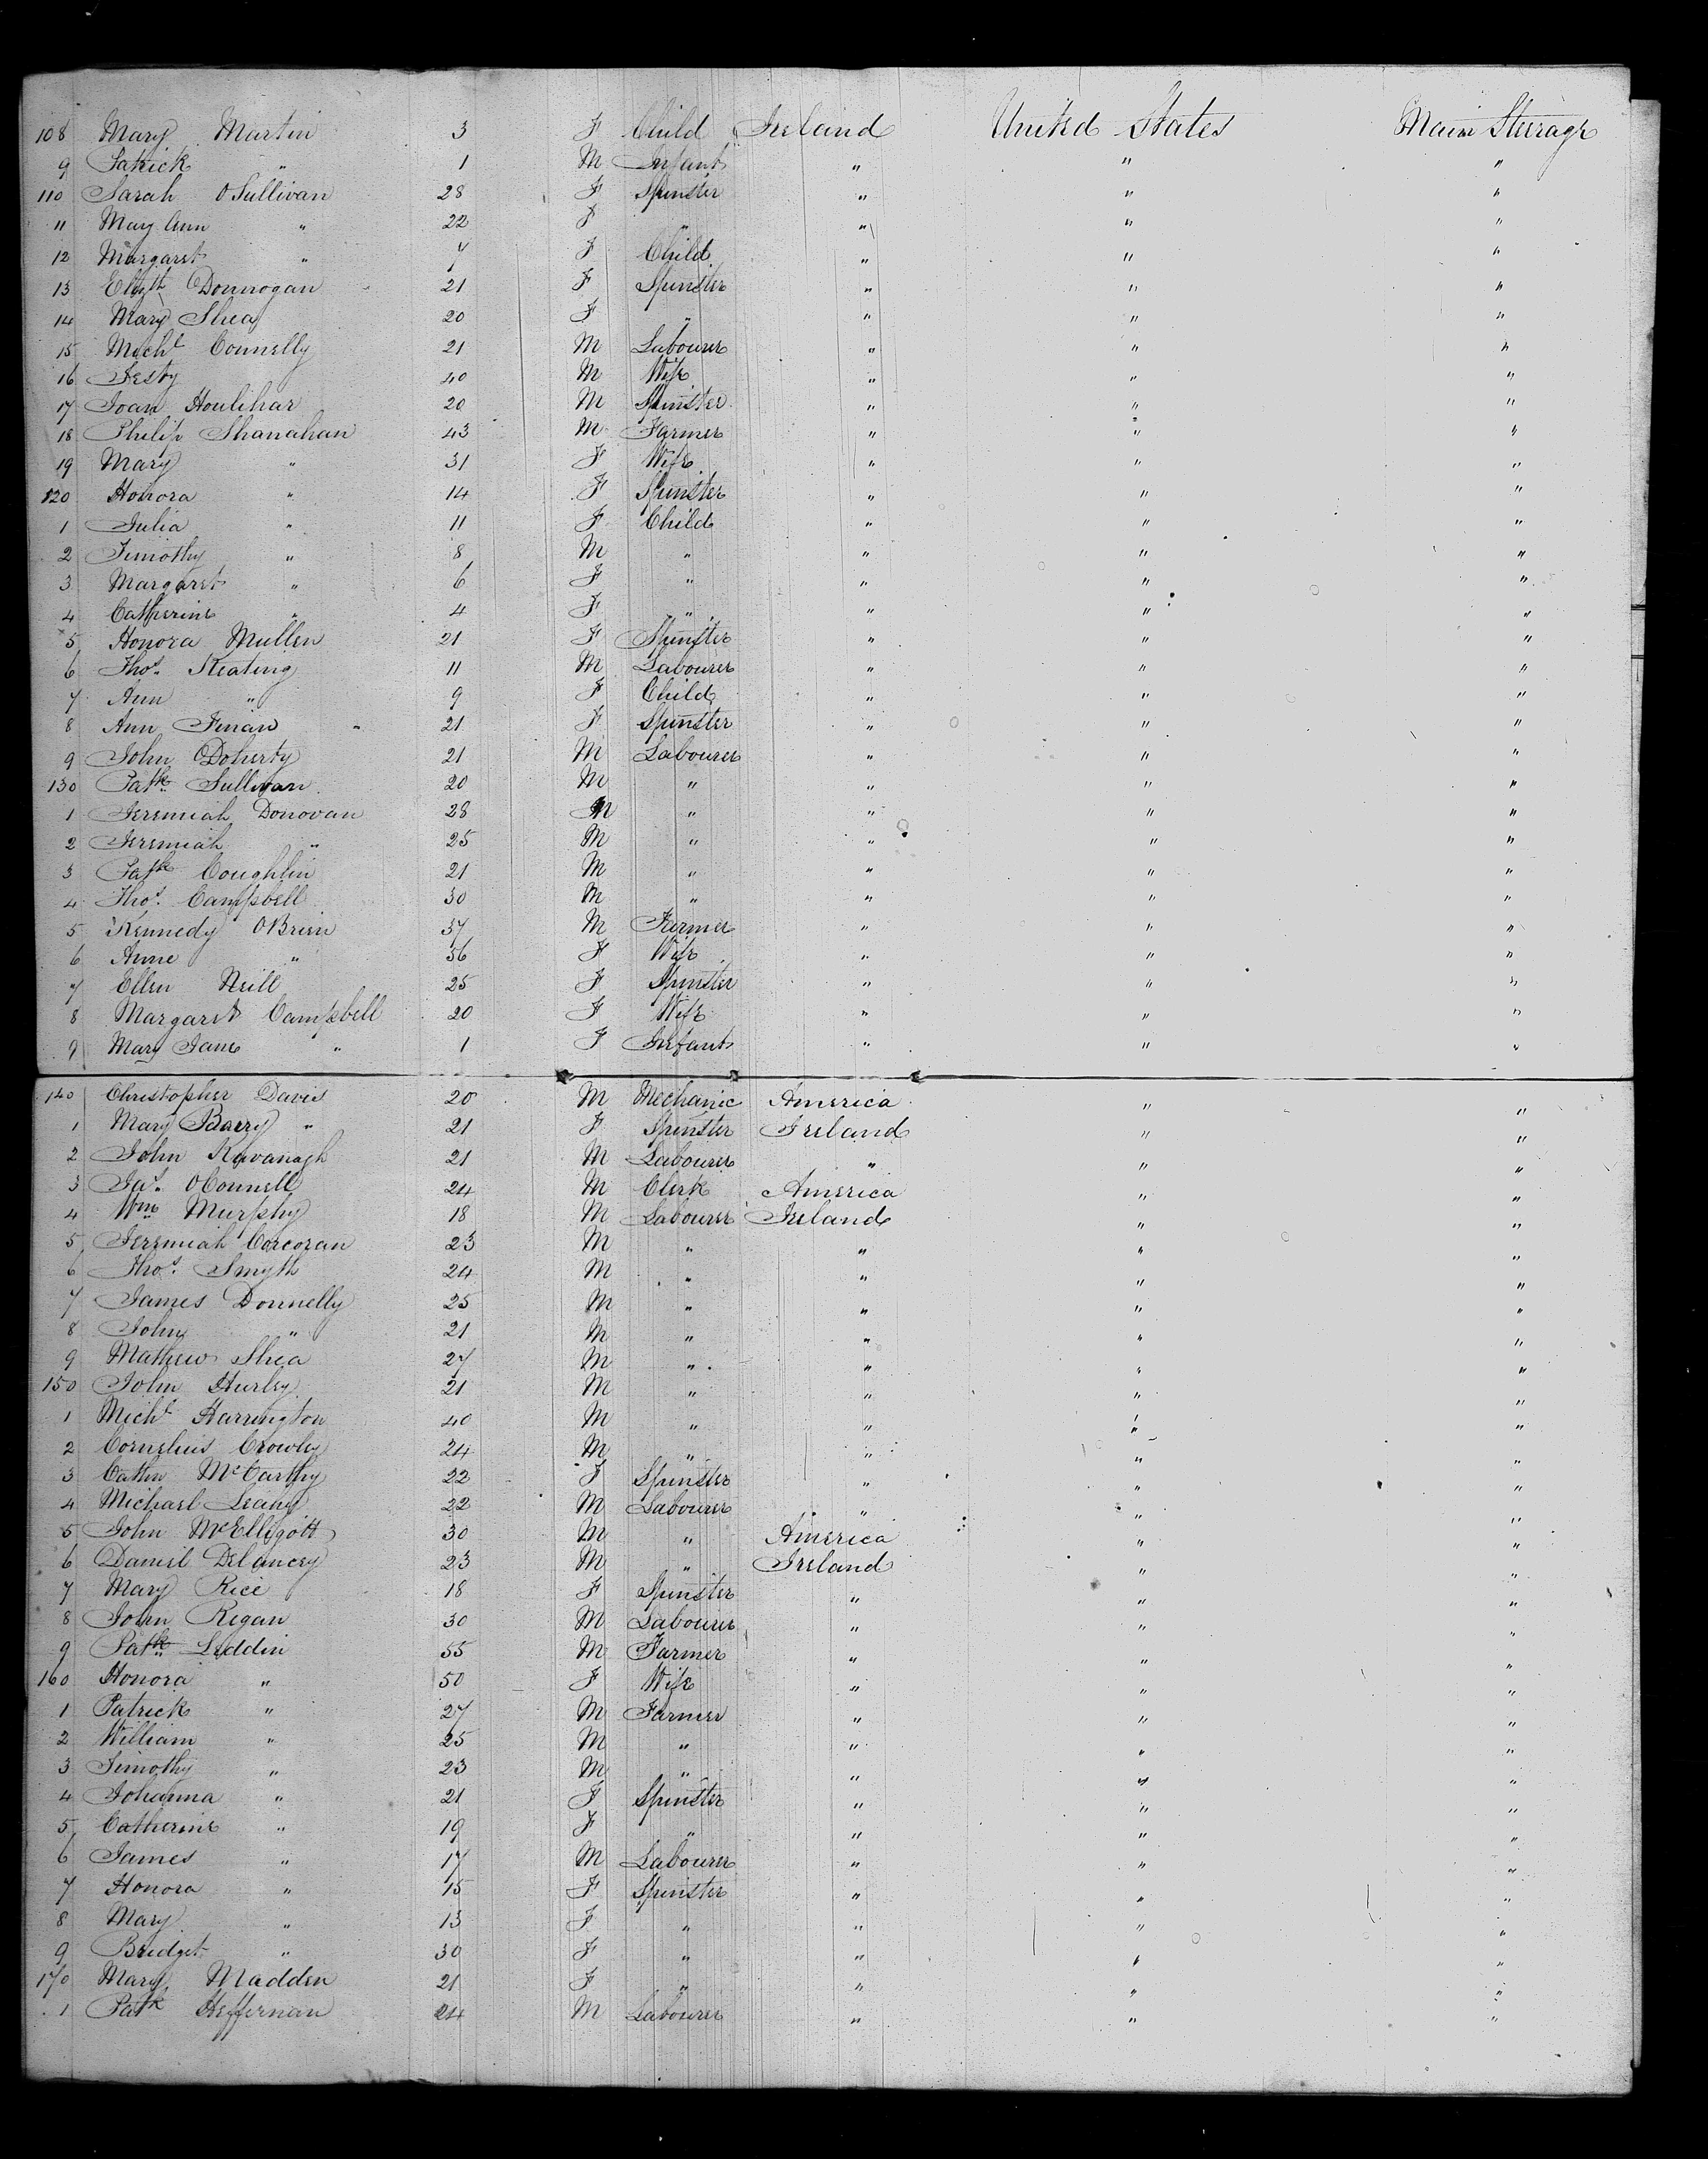 108 Mary Martin 3 F Child Ireland United States Main Steerage
9 Patrick " 1 M Infant " " "
110 Sarah OSullivan 28 F Spinster " " "
11 Mary Ann " 22 F " " " "
12 Margaret " 7 F Child " " "
13 Elizth Donnogan 21 F Spinster " " "
14 Mary Shea 20 F " " " "
15 Michl Connelly 21 M Labourer " " "
16 40 M Wife " " "
17 Joan Houlihar 20 M Spinster " " "
18 Philip Shanahan 43 M Farmer " " "
19 Mary " 31 F Wife " " "
120 Honora " 14 F Spinster " " "
1 Julia " 11 F Child " " "
2 Timothy " 8 M " " " "
3 Margaret " 6 F " " " "
4 Catherine " 4 F " " " "
5 Honora Mullen 21 F Spinster " " "
6 Thos. Keating 11 M Labourer " " "
7 Ann " 9 F Child " " "
8 Ann Finan 21 F Spinster " " "
9 John ODoherty 21 M Labourer " " "
130 Patk. Sullivan 20 M " " " "
1 Jeremiah Donovan 28 M " " " "
2 Jeremiah " 25 M " " " "
3 Patk Coughlin 21 M " " " "
4 Thos. Campbell 30 M " " " "
5 Kennedy OBrien 37 M Farmer " " "
6 Anne " 36 F Wife " " "
7 Ellen Neill 25 F Spinster " " "
8 Margaret Campbell 20 F Wife " " "
9 Mary Jane " 1 F Infant " " "
140 Christopher Davis 20 M Mechanic America " "
1 Mary Barry " 21 F Spinster Ireland " "
2 John Kavanagh 21 M Labourer " " "
3 Jas. OConnell 24 M Clerk America " "
4 Wm Murphy 18 M Labourer Ireland " "
5 Jeremiah Corcoran 23 M " " " "
6 Thos. Smyth 24 M " " " "
7 James Donnelly 25 M " " " "
8 John " 21 M " " " "
9 Mathew Shea 27 M " " " "
150 John Hurley 21 M " " " "
1 Michl Harrington 40 M " " " "
2 Cornelius Crowley 24 M " " " "
3 Cathn McCarthy 22 F Spinster " " "
4 Michael Leahy 22 M Labourer " " "
5 John McElligott 30 M " America " "
6 Daniel Delancey 23 M " Ireland " "
7 Mary Rice 18 F Spinster " " "
8 John Regan 30 M Labourer " " "
9 Patk. Leddin 55 M Farmer " " "
160 Honora " 50 F Wife " " "
1 Patrick " 27 M Farmer " " "
2 William " 25 M " " " "
3 Timothy " 23 M " " " "
4 Johanna " 21 F Spinster " " "
5 Catherine " 19 F " " " "
6 James " 17 M Labourer " " "
7 Honora " 15 F Spinster " " "
8 Mary " 13 F " " " "
9 Bridget " 30 F " " " "
170 Mary Madden 21 F " " " "
1 Patk Heffernan 24 M Labourer " " "